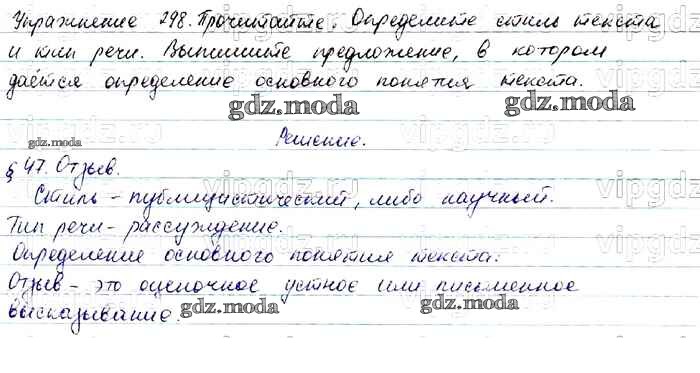 Упражнение 298. Прочитайте. Определите стиль текста
и тип речи. Выпишите предложение, в котором
даётся определение основного понятия текста.
gdz.moda gdz.moda
gdz.moda Решение.
§ 47. Отзыв.
Стиль - публицистический, либо научный.
Тип речи - рассуждение.
Определение основного понятия текста:
Отзыв - это оценочное устное или письменное
высказывание. gdz.moda gdz.moda